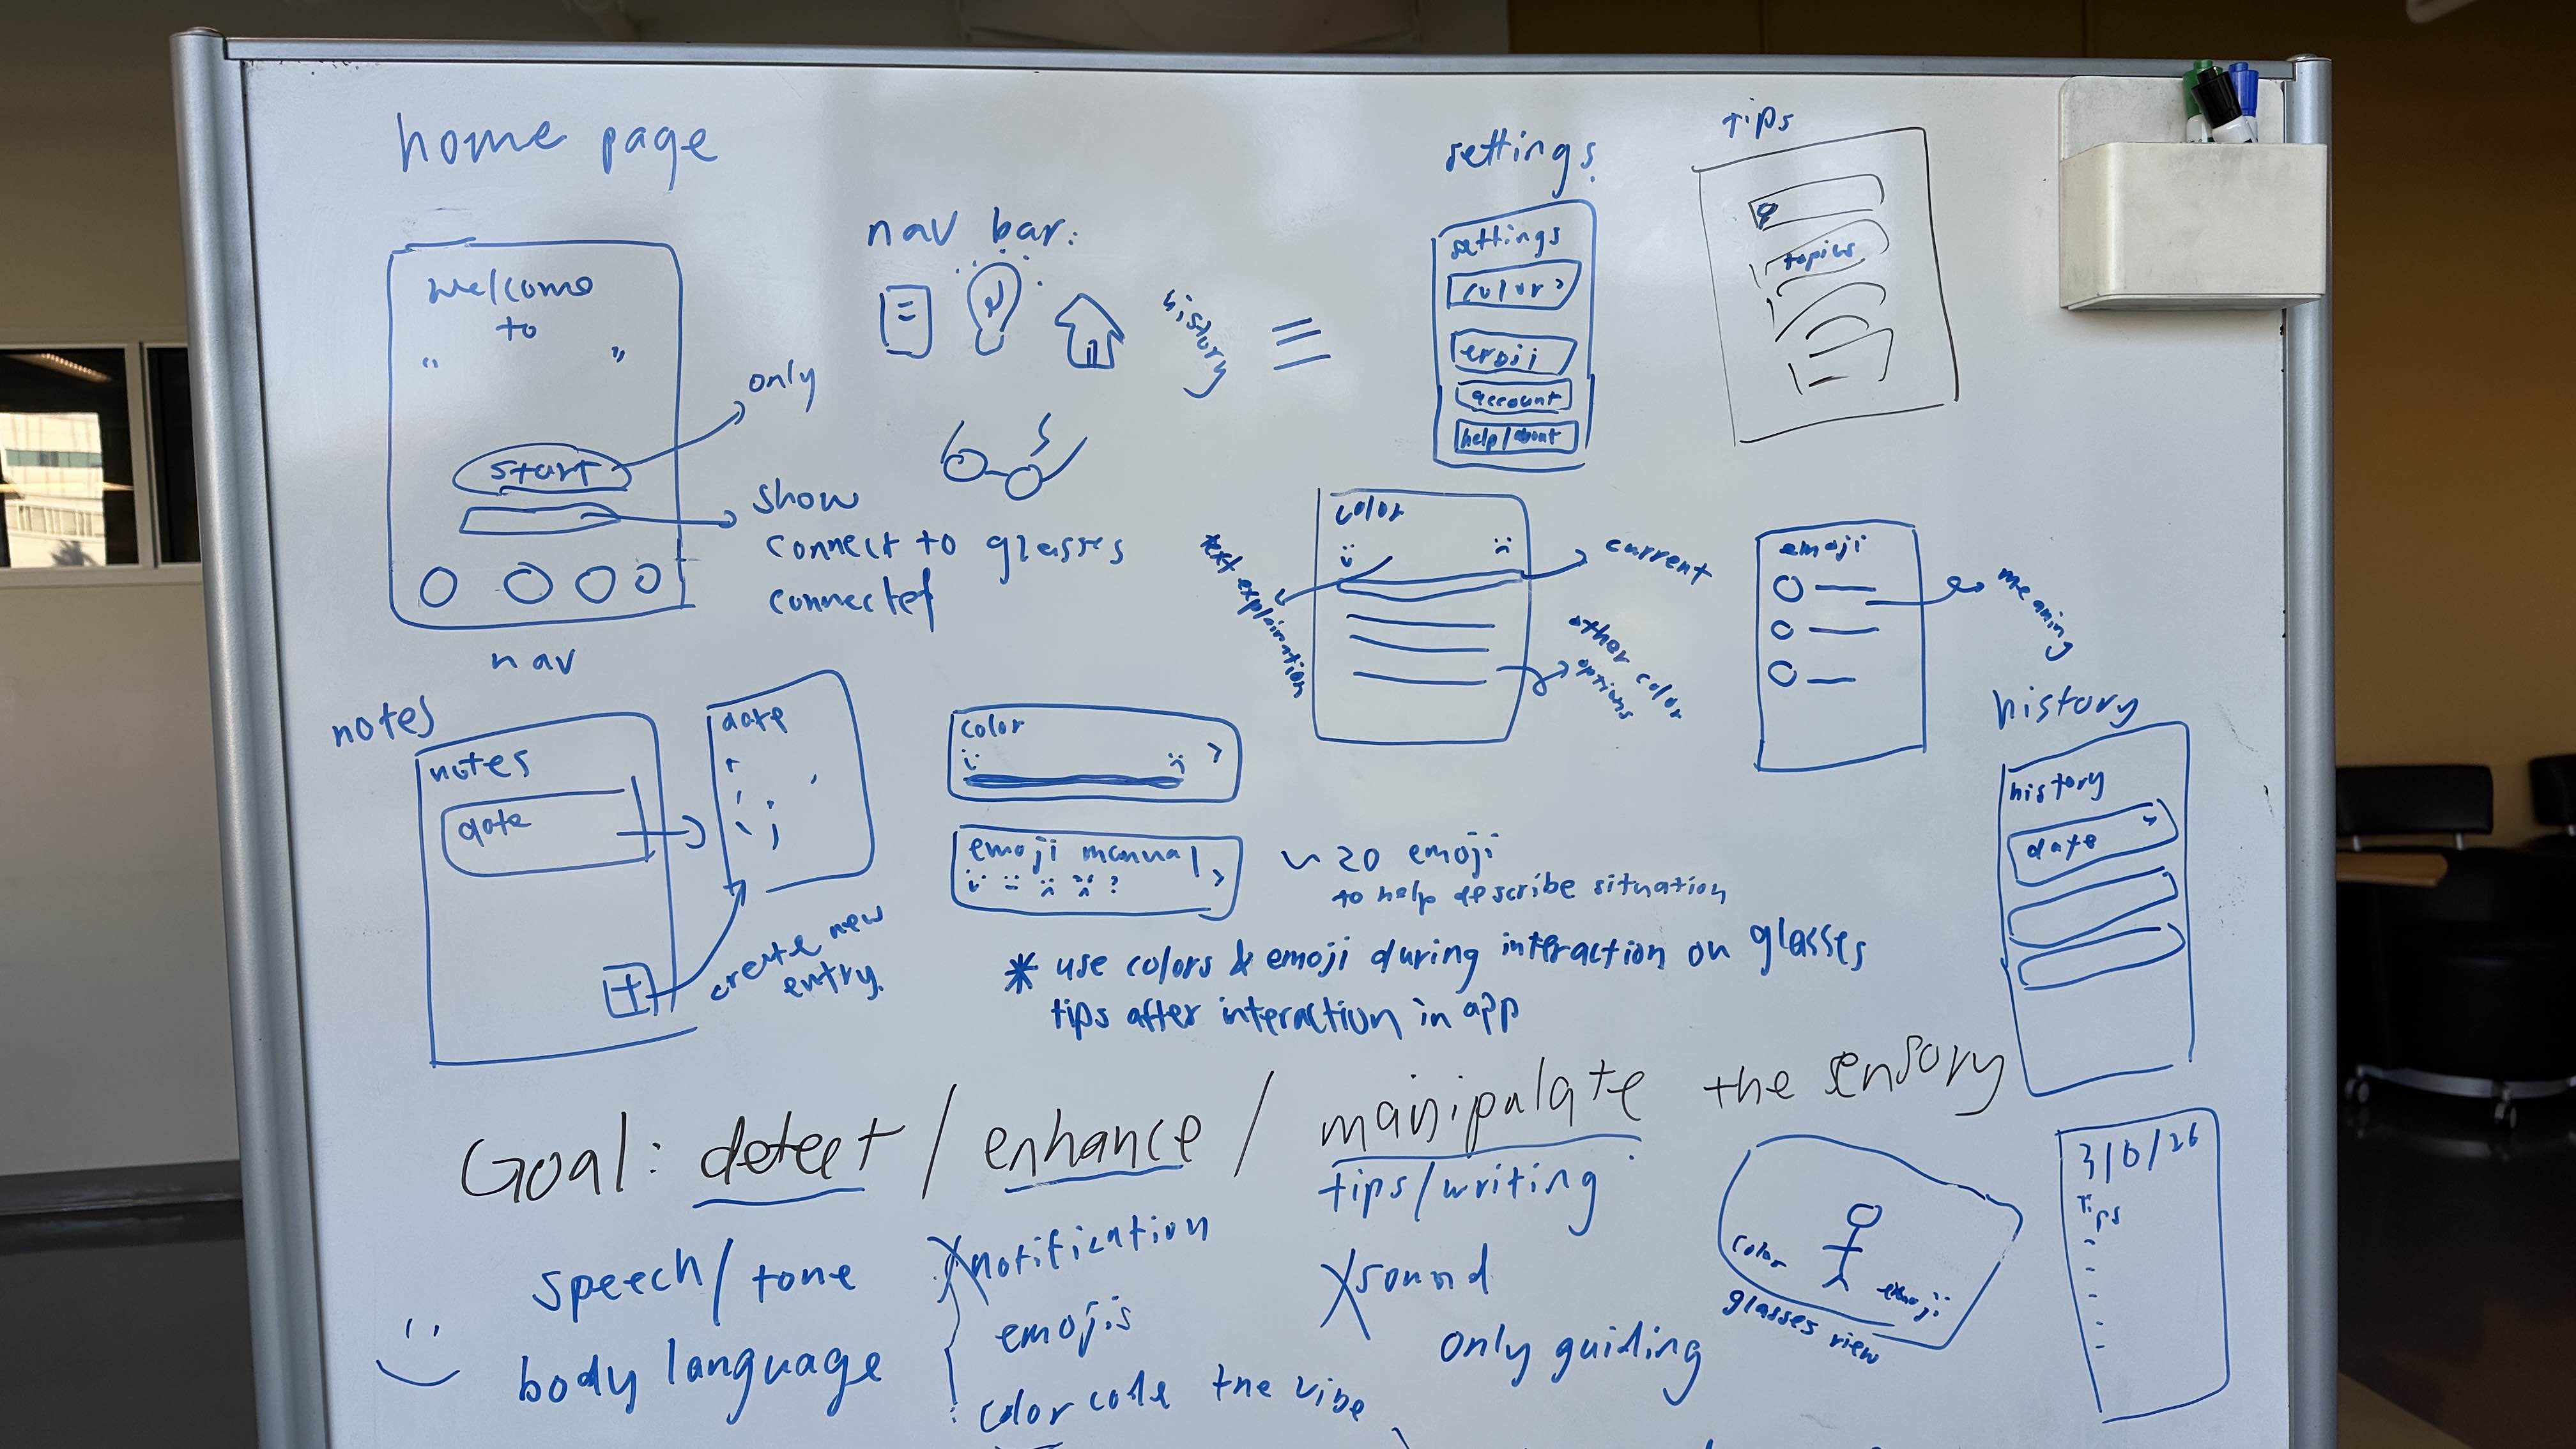 home page
welcome
to
“ ”
start
only
show
connect to glasses
connected
nav
nav bar:
history
settings
settings
color >
emoji
account
help/about
tips
topics
color
text explaination
current
other color
options
emoji
meaning
notes
notes
date
date
create new
entry.
color
>
emoji manual
>
?
~ 20 emoji
to help describe situation
* use colors & emoji during interaction on glasses
tips after interaction in app
history
history
date >
Goal: detect / enhance / manipulate the sensory
tips/writing
speech/ tone
body language
X notification
emojis
color code the vibe
X sound
only guiding
color
emoji
glasses view
Tips